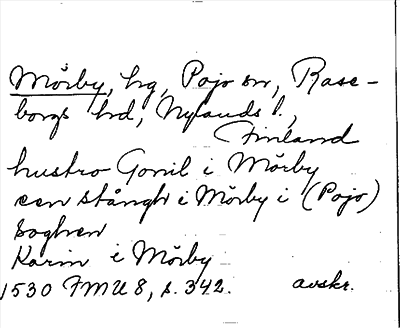 Mörby, hg, Pojo sn, Rase-
borgs hd, Nylands l.,
Finland
hustro Gonil i Mörby
een stångh i Mörby i (Pojo)
soghen
Karin i Mörby
1530 FMU 8, s. 342. avskr.